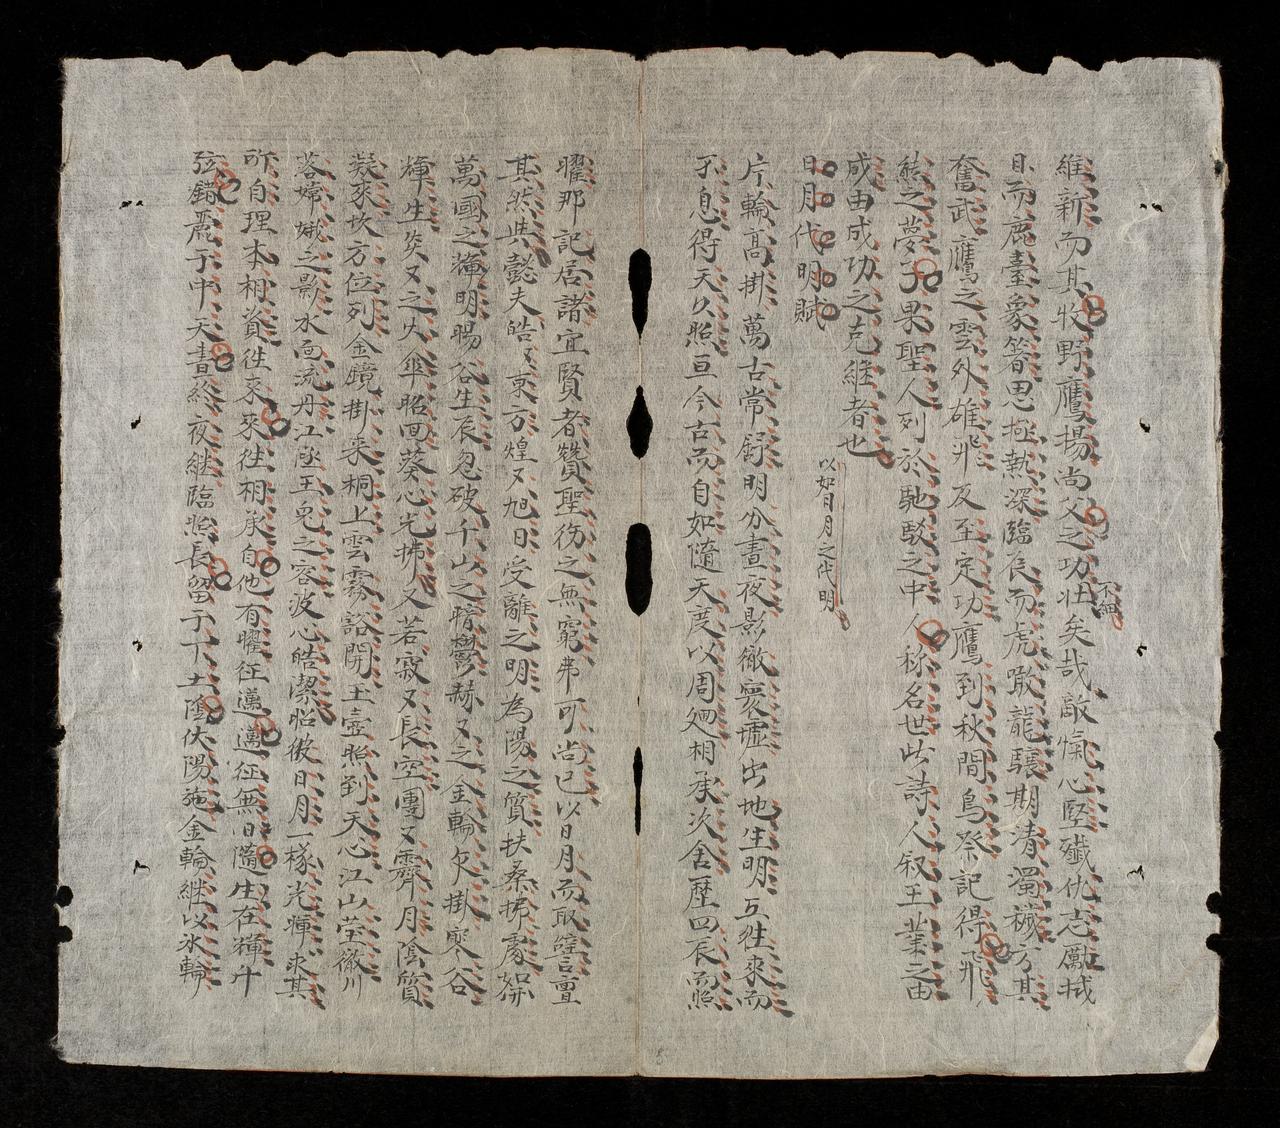 維新而其牧野鷹揚尚父之功壯矣哉敵愾心堅殲仇志勵撼
不細
目而鹿臺象箸思極執深臨辰而虎敢龍驤期清濁穢方其
奮武鷹之雲外雄飛及至定功鷹到秋間鳥祭記得飛
熊之夢了果聖人列於馳駁之中人稱名世此詩人叙王業之由
成由成功之克繼者也
以如日月之代明
日月代明賦
片輪高掛萬古常舒明分晝夜影徹寰墟出地生明互往來而
不息得天久照亘今古而自如隨天度以周廻相承次舍歷四辰而照
曜那記居諸宜賢者贊聖彷之無窮弗可尚已以日月而取譬亶
其然與懿夫皓々東方煌々旭日受離之明為陽之質扶桑拂處
萬國之輝明暘谷生辰忽破千山之暗鬱赫々之金輪欠掛寥谷
輝生炎々之火傘昭回葵心光拂又若寂々長空團々霽月陰質
凝來坎方位列金鏡掛來桐上雲霧豁開玉壺照到天心江山瑩徹川
落嫦娥之影水面流丹江涵玉兔之容波心皓潔昭徹日月一樣光輝求其
所自理本相資往來來往相承自他有曜征邁邁征無日隨生在輝斗
弦錯麗于中天晝終夜繼臨照長留于下土陰伏陽施金輪繼以氷輪